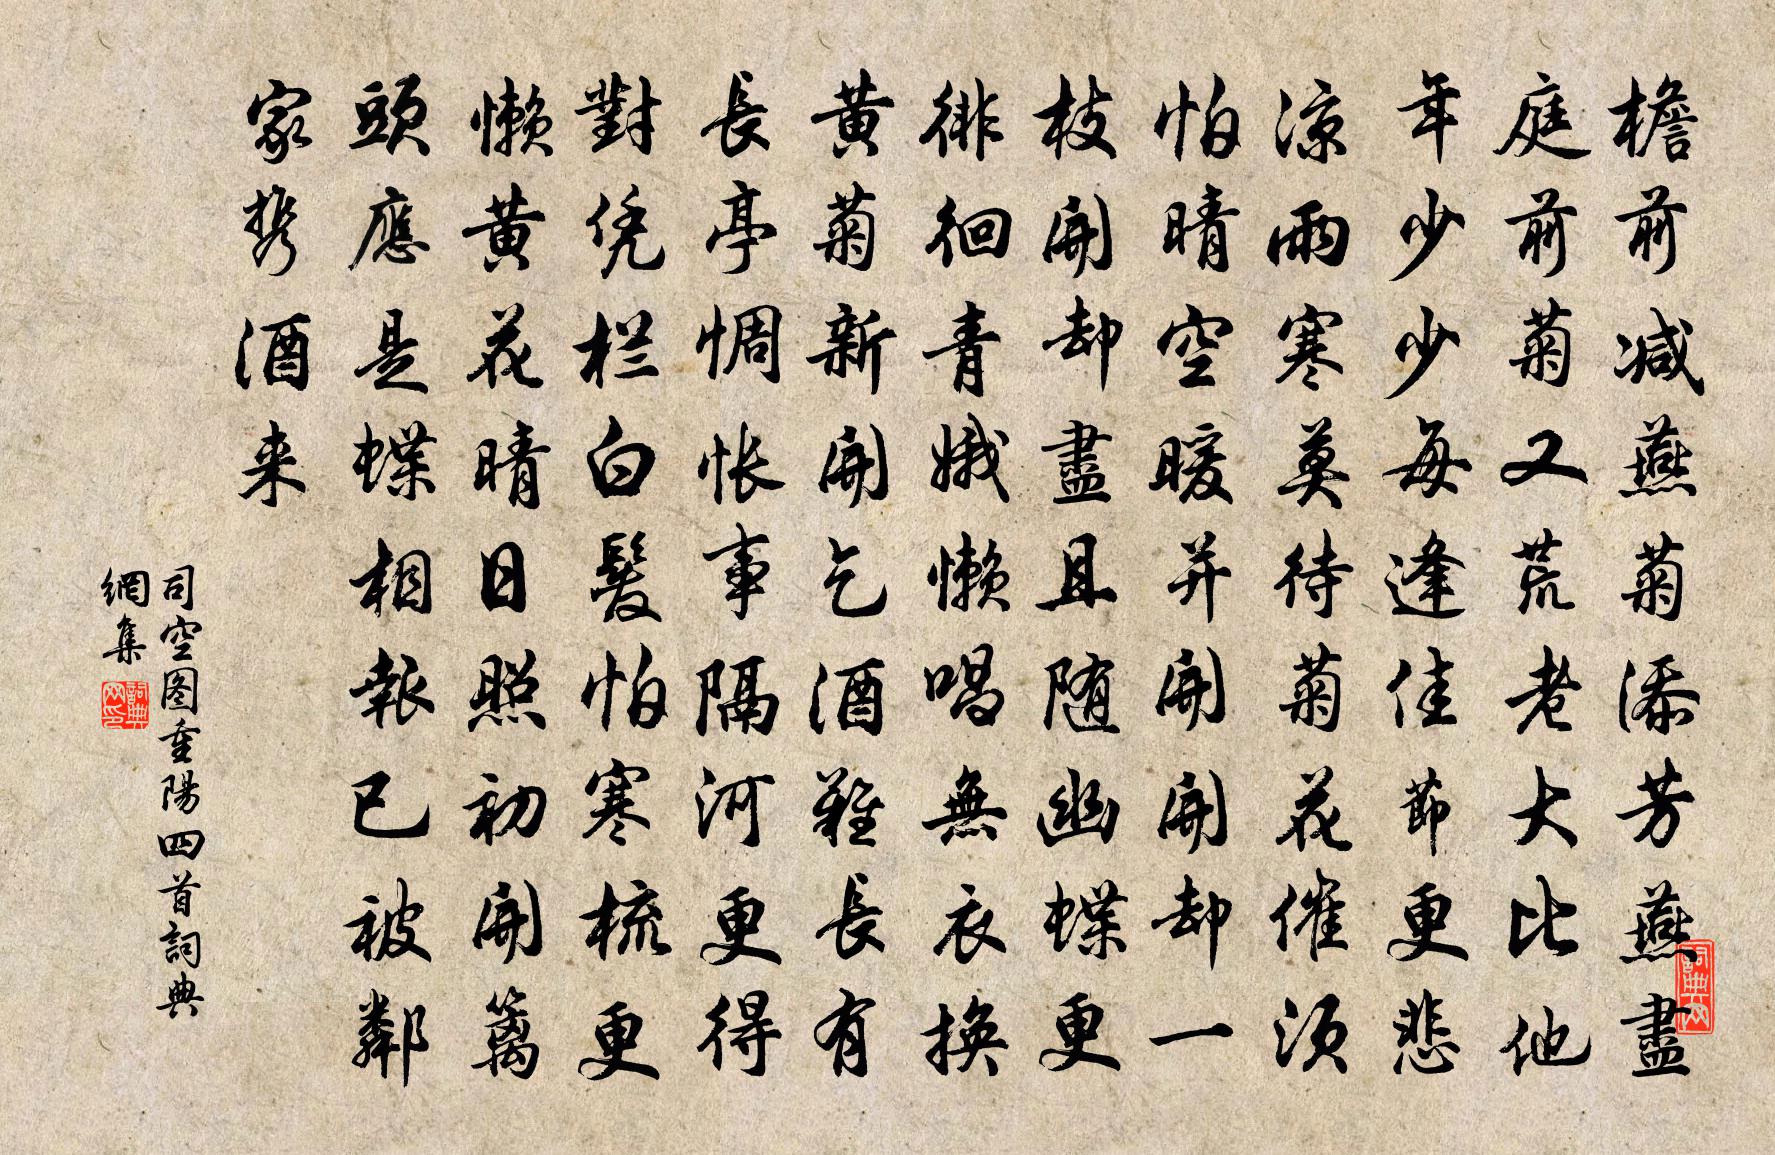 檐前减燕菊添芳燕盡
庭前菊又荒老大比他
年少少每逢佳節更悲
涼雨寒莫待菊花催須
怕晴空暖并開開却一
枝開却盡且随幽蝶更
徘徊青娥懶唱無衣換
黄菊新開乞酒難長有
長亭惆怅事隔河更得
對凭栏白髮怕寒梳更
懶黄花晴日照初開篱
頭應是蝶相報已被鄰
家携酒来
司空图重陽四首詞典
網集
詞典网印
詞典网